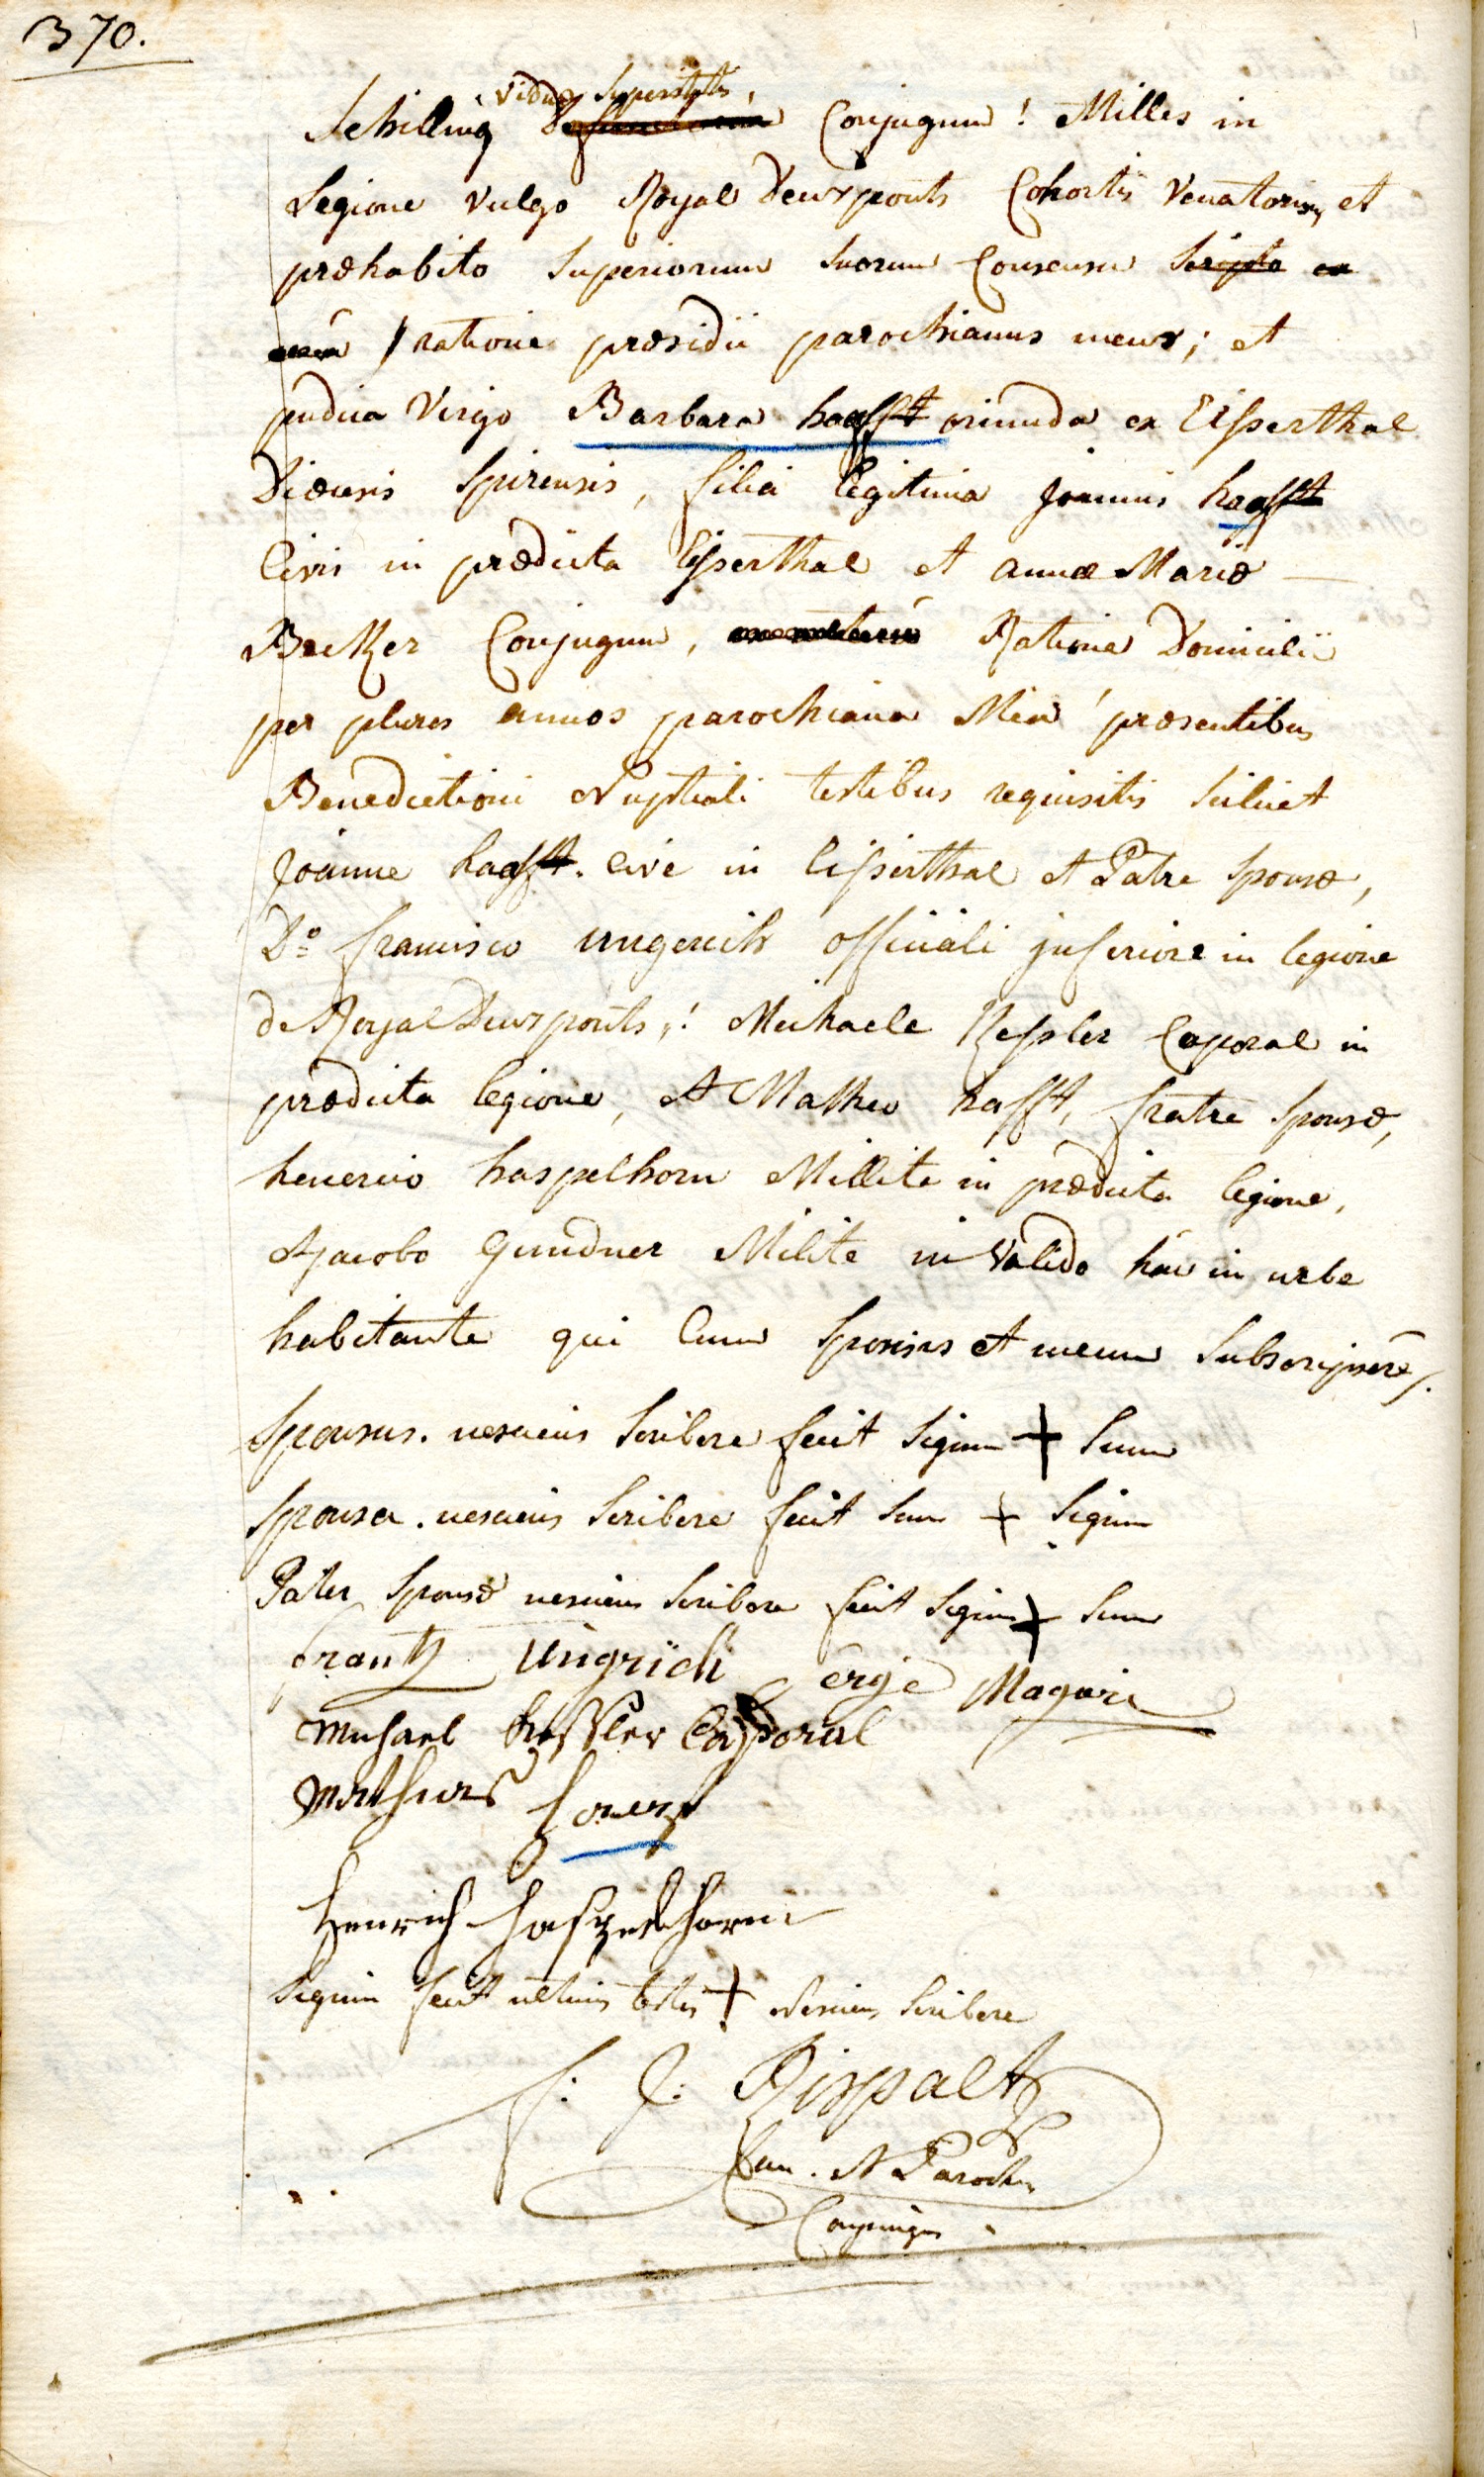 370.
viduæ Superstitis,
Schilling Defunctorum Conjugum! Milles in
Legione vulgo Royal Deuxponts Cohortis Venatorum, et
præhabito Superiorum suorum Consensu Scripto
ratione præsidii parochianus meus; et
pudica Virgo Barbara haafft oriunda ex Eisserthal
Diœcesis Spirensis, filia legitima Joannis haafft
Civis in prædicta Eisserthal et annæ Mariæ
Becker Conjugum, Ratione Domicilii
per plures annos parochiana Mea! præsentibus
Benedictioni Nuptiali testibus requisitis scilicet
Joanne haafft. Cive in Eisserthal et Patre Sponsæ,
Do. francisco ungerich officiali inferiore in legione
de Royal Deuxponts,! Michaele Kessler Caporal in
prædicta legione, et Matheo hafft, fratre sponsæ,
henerico haspelhorn Millite in prædicta legione,
et Jacobo Gundner Milite invalido hâc in urbe
habitante qui Cum Sponsis et mecum Subscripsere.
Sponsus. nesciens Scribere fecit Signum + Suum
Sponsa. nesciens Scribere fecit Suum + Signum
Pater Sponsæ nesciens Scribere fecit Signum + Suum
frantz Ungrich Gerge Magari
Michael Kessler Caporal
Mathias
Henrich Haspelhorn
Signum fecit ultimus testis + Nesciens Scribere
f: J: Rispalt
Can. & Parochus